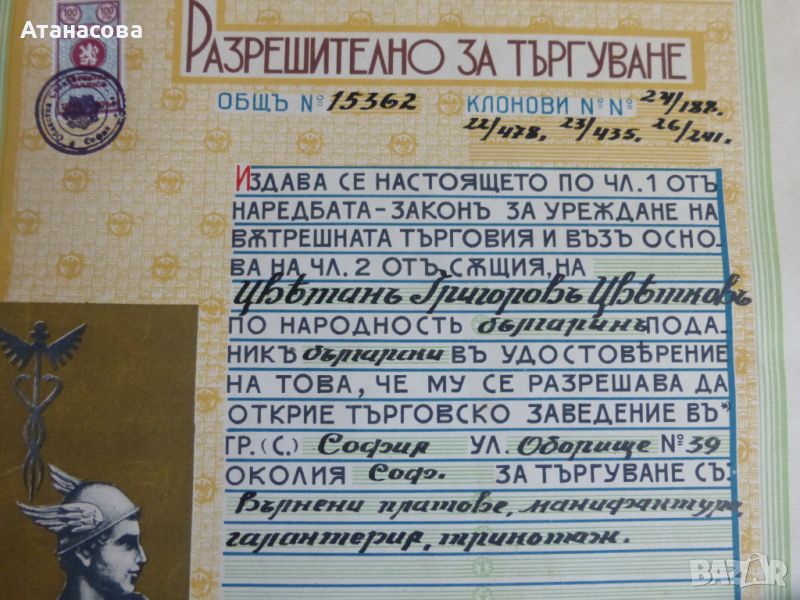 Атанасова
100 100
РАЗРЕШИТЕЛНО ЗА ТЪРГУВАНЕ
ОБЩЪ № 15362 КЛОНОВИ №№ 24/187.
22/478. 23/435. 26/241.
ИЗДАВА СЕ НАСТОЯЩЕТО ПО ЧЛ. 1 ОТЪ
НАРЕДБАТА-ЗАКОНЪ ЗА УРЕЖДАНЕ НА
ВѪТРЕШНАТА ТЪРГОВИЯ И ВЪЗЪ ОСНО-
ВА НА ЧЛ. 2 ОТЪ СѪЩИЯ, НА
Цвѣтанъ Григоровъ Цвѣтковъ
ПО НАРОДНОСТЬ българинъ ПОДА-
НИКЪ български ВЪ УДОСТОВѢРЕНИЕ
НА ТОВА, ЧЕ МУ СЕ РАЗРЕШАВА ДА
ОТКРИЕ ТЪРГОВСКО ЗАВЕДЕНИЕ ВЪ*)
ГР. (С.) София УЛ. Оборище № 39
ОКОЛИЯ Соф. ЗА ТЪРГУВАНЕ СЪ:
Вълнени платове, манифактура
галантерия, трикотаж.
BAZAR